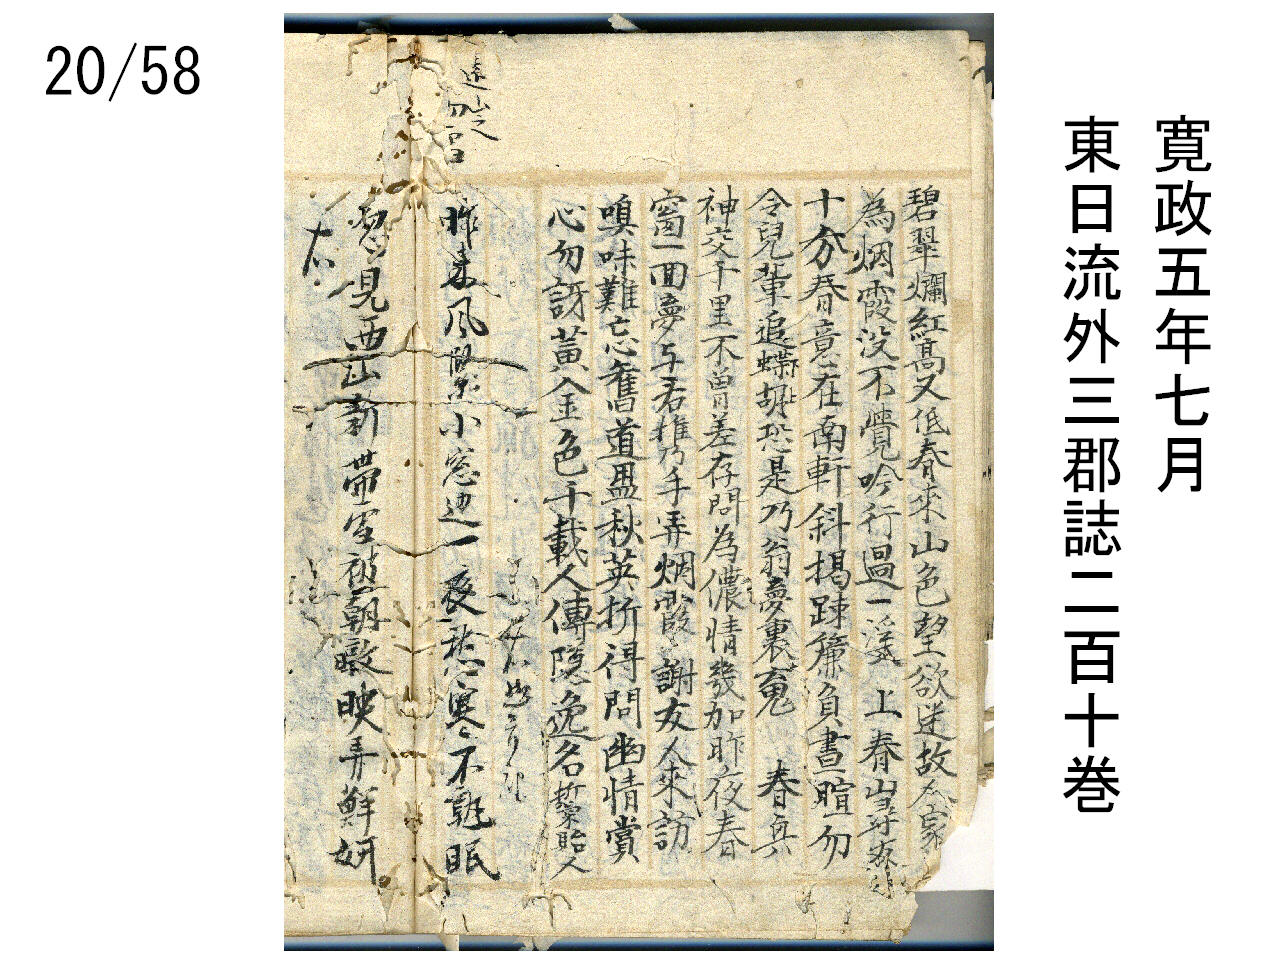 20/58
寛政五年七月
東日流外三郡誌二百十巻
遠山之
碧翠爛紅高又低春来山色望欲迷故
為烟霞没不覺吟行過一溪 上春山
十分春意在南軒斜掲踈簾負晝暄勿
令兒輩追蝴恐是乃翁夢裏魂 春
神交千里不曽差存問為儂情幾加昨夜春
窗一回夢与君携手弄烟霞 謝友人来訪
嗅味難忘舊道盟秋英折得問幽情賞
心勿訝黃金色千載人傳隠逸名 折菊贻人
昨来風緊小窓辺一夜愁寒不就眠
忽見西山新帯雪朝暾映弄鮮妍